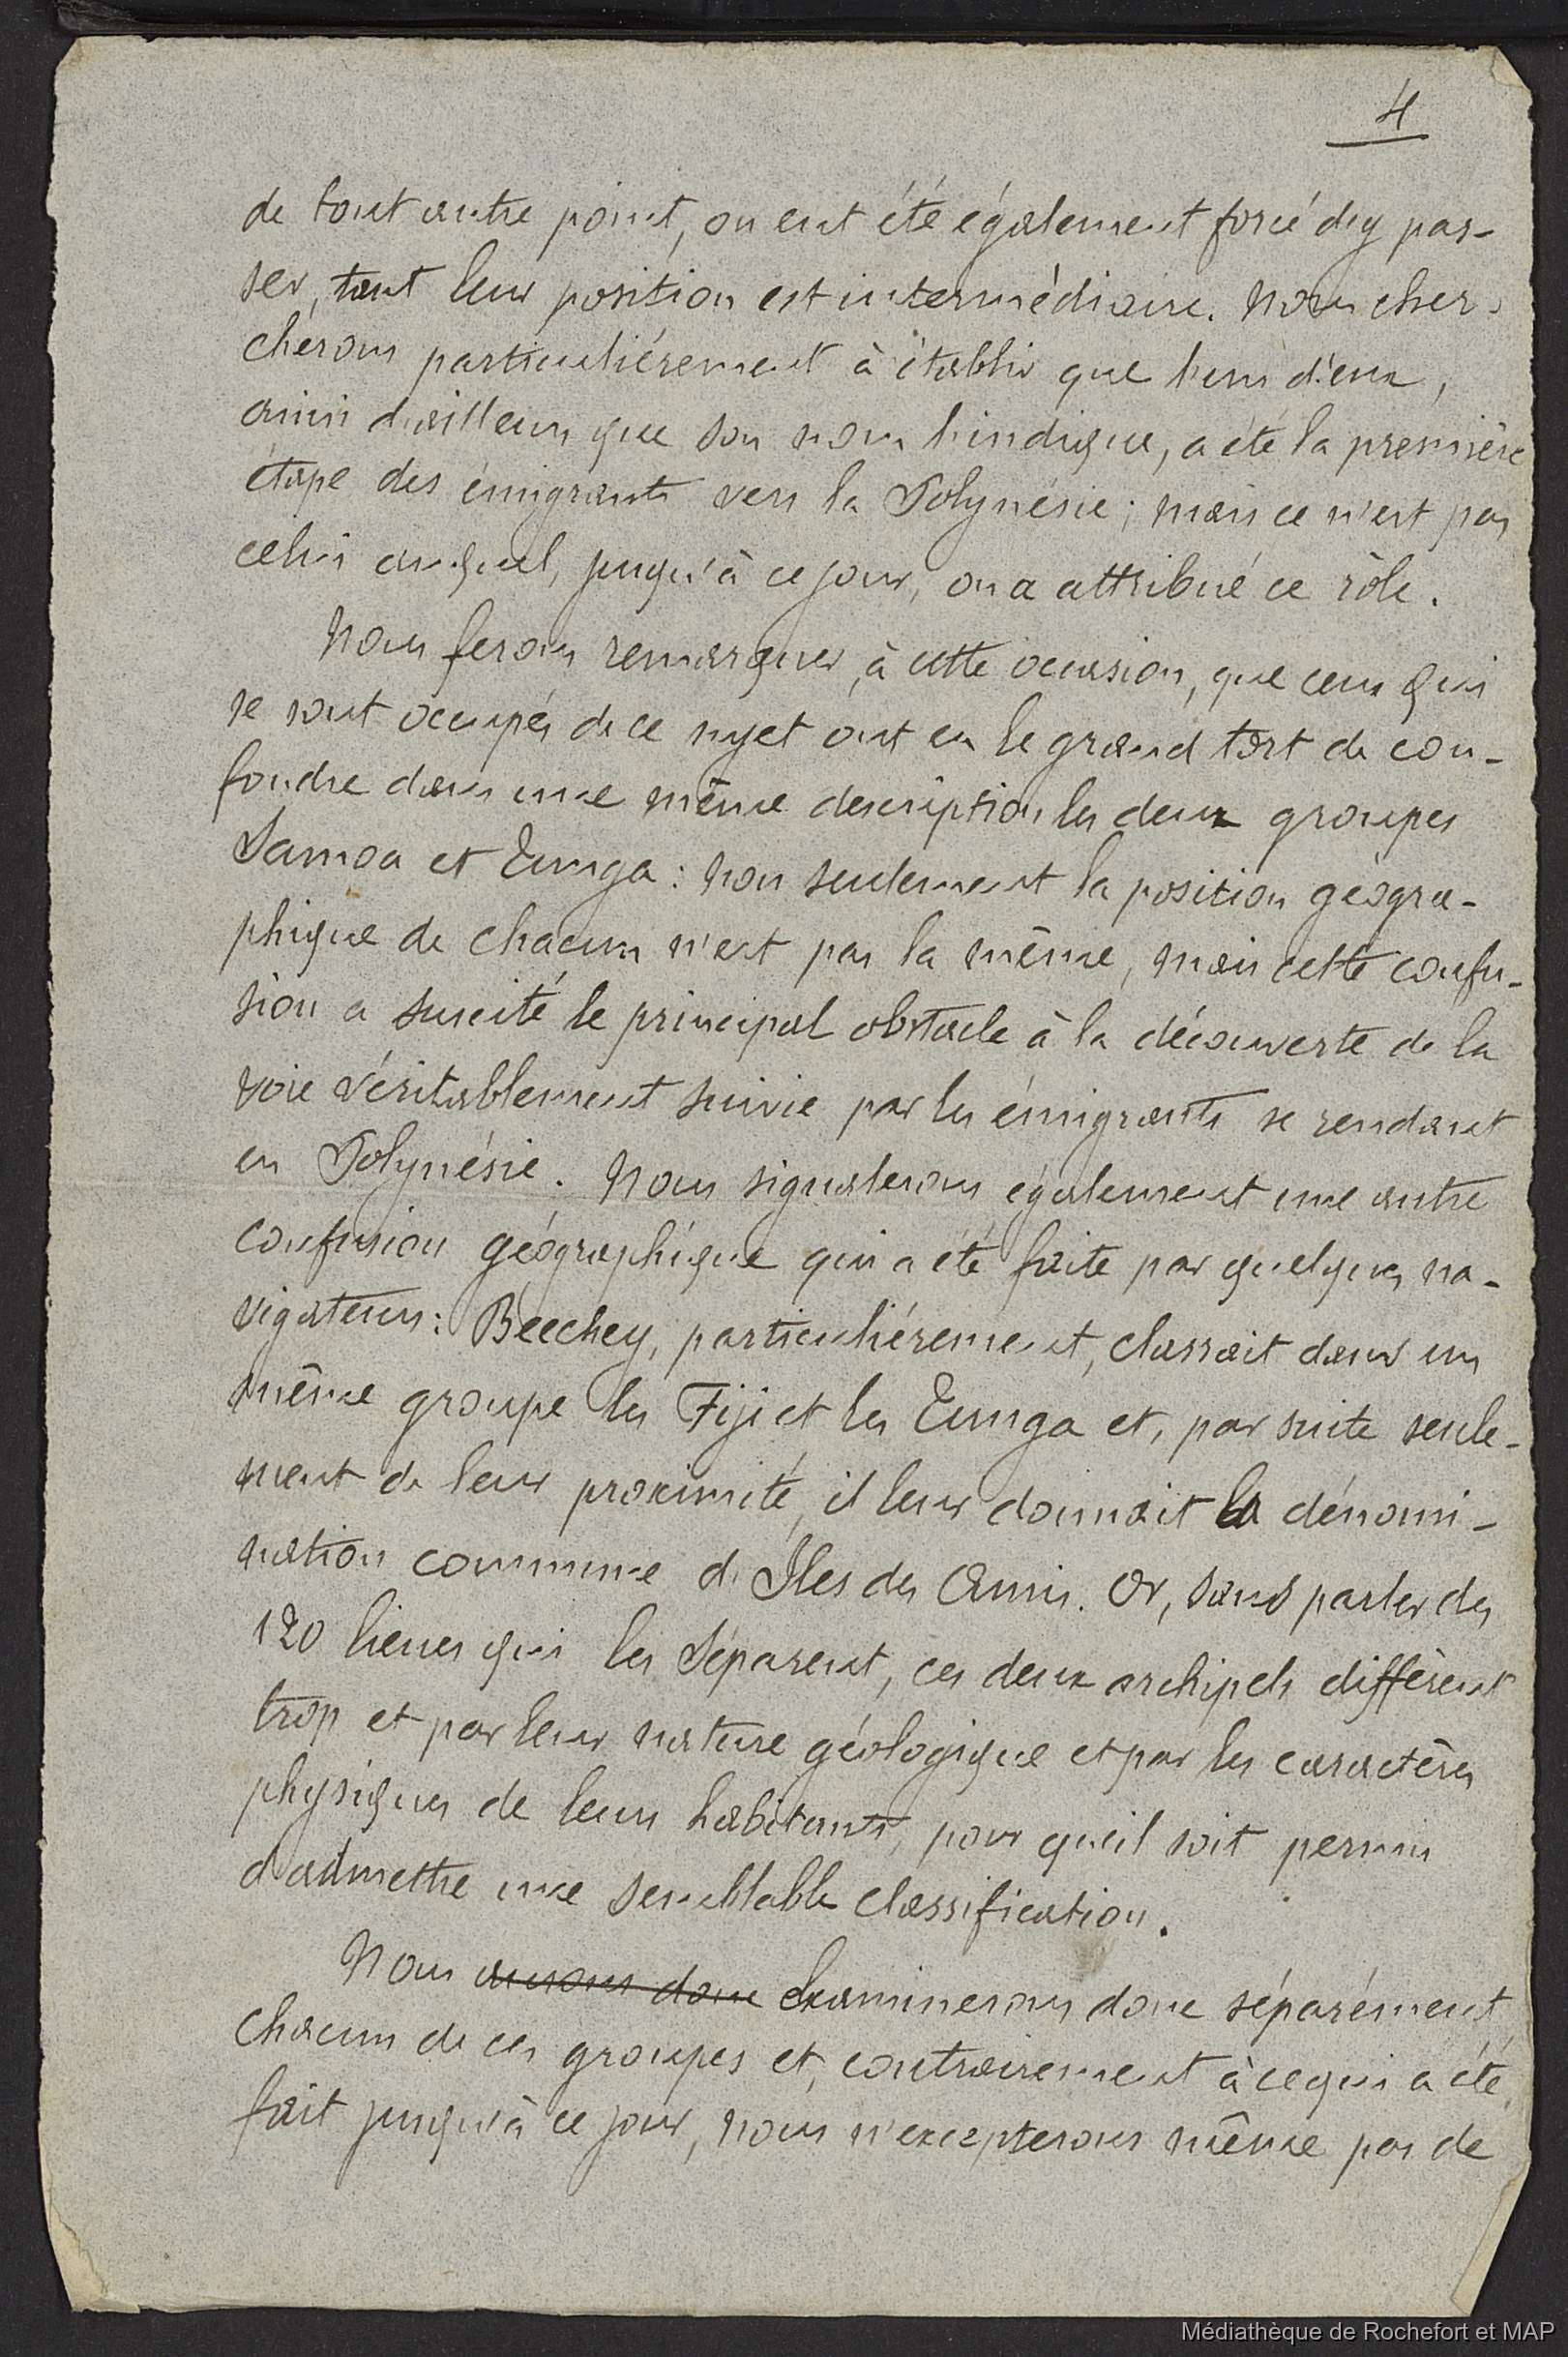 4
de tout autre point, on eut été également forcé d'y pas-
ser, tant leur position est intermédiaire. Nous cher-
chérons particuliérement à établir que l'un d'eux,
ainsi d'ailleurs que son nom l'indique, a été la première
étape des émigrants vers la Polynésie ; mais ce n'est pas
celui auquel, jusqu'à ce jour, on a attribué ce rôle.
Nous ferons remarquer, à cette occasion, que ceux qui
se sont occupés de ce sujet ont eu le grand tort de con-
fondre dans une même description les deux groupes
Samoa et Tunga : non seulement la position géogra-
phique de chacun n'est pas la même, mais cette confu-
sion a suscité le principal obstacle à la découverte de la
voie véritablement suivie par les émigrants se rendant
en Polynésie. Nous signalerons également une autre
confusion géographique qui a été faite par quelques na-
vigateurs : Beechey, particuliérement, classait dans un
même groupe les Fiji et les Tunga et, par suite seule-
ment de leur proximité, il leur donnait la dénomi-
nation commune d'Iles des Amis. Or, sans parler des
120 lieues qui les séparent, ces deux archipels diffèrent
trop et par leur nature géologique et par les caractères
physiques de leurs habitants, pour qu'il soit permis
d'admettre une semblable classification.
Nous examinerons donc séparément
chacun de ces groupes et, contrairement à ce qui a été
fait jusqu'à ce jour, nous n'excepterons même pas de
Médiathèque de Rochefort et MAP